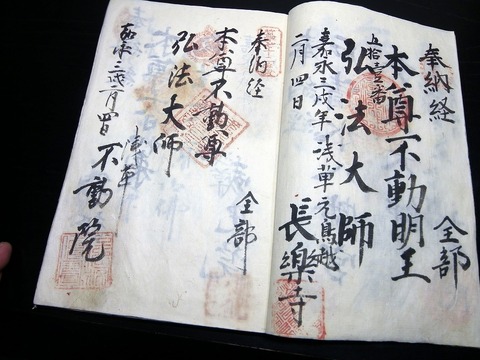 奉納経 全部
本尊不動明王
五拾壹番
弘法大師
嘉永三戌年 浅草元鳥越
二月四日 長樂寺
奉納経 全部
本尊不動尊
弘法大師
浅草 不動院
嘉永三戌二月四日